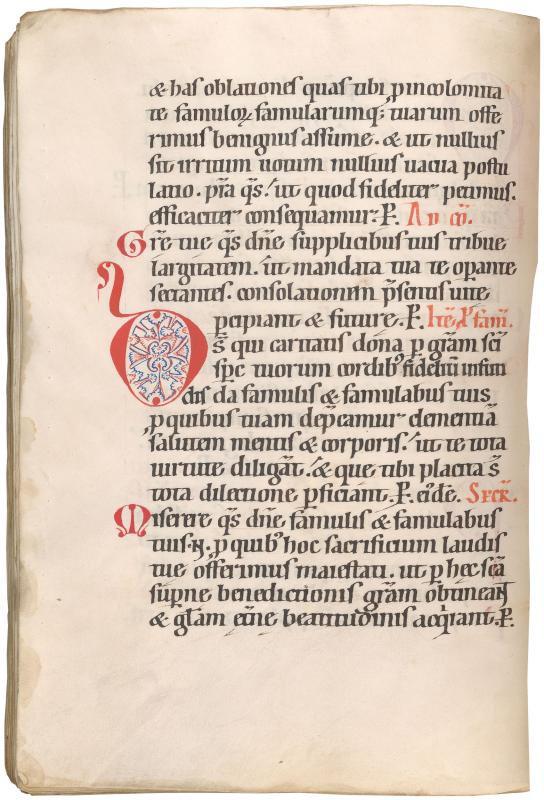 & has oblationes quas tibi ꝑ incolomita
te famuloꝝ famularumq; tuarum offe
rimus benignus assume. & ut nullius
sit irritum uotum nullius uacua postu
latio. p̄ta q̄s. ut quod fideliter petimus.
efficaciter consequamur. P. Ad cō.
Gr̄e tue q̄s dn̄e supplicibus tuis tribue
largitatem. ut mandata tua te oꝑante
sectantes. consolationem p̄sentis uite
percipiant & future. P. Itē ꝑ fam̄.
Ds̄ qui caritatis dona ꝑ grām sc̄i
sp̄c tuorum cordib; fideliū infun
dis da famulis & famulabus tuis
ꝑ quibus tuam dep̄camur clementiā
salutem mentis & corporis. ut te tota
uirtute diligāt. & que tibi placita s̄
tota dilectione ꝑficiant. P. eiꝰdē. Secr̄.
Miserere q̄s dn̄e famulis & famulabus
tuis .N. ꝓ quib; hoc sacrificium laudis
tue offerimus maiestati. ut ꝑ hec sc̄a
sup̄ne benedictionis grām obtineant
& glām et̄ne beatitudinis acq̇rant. P.